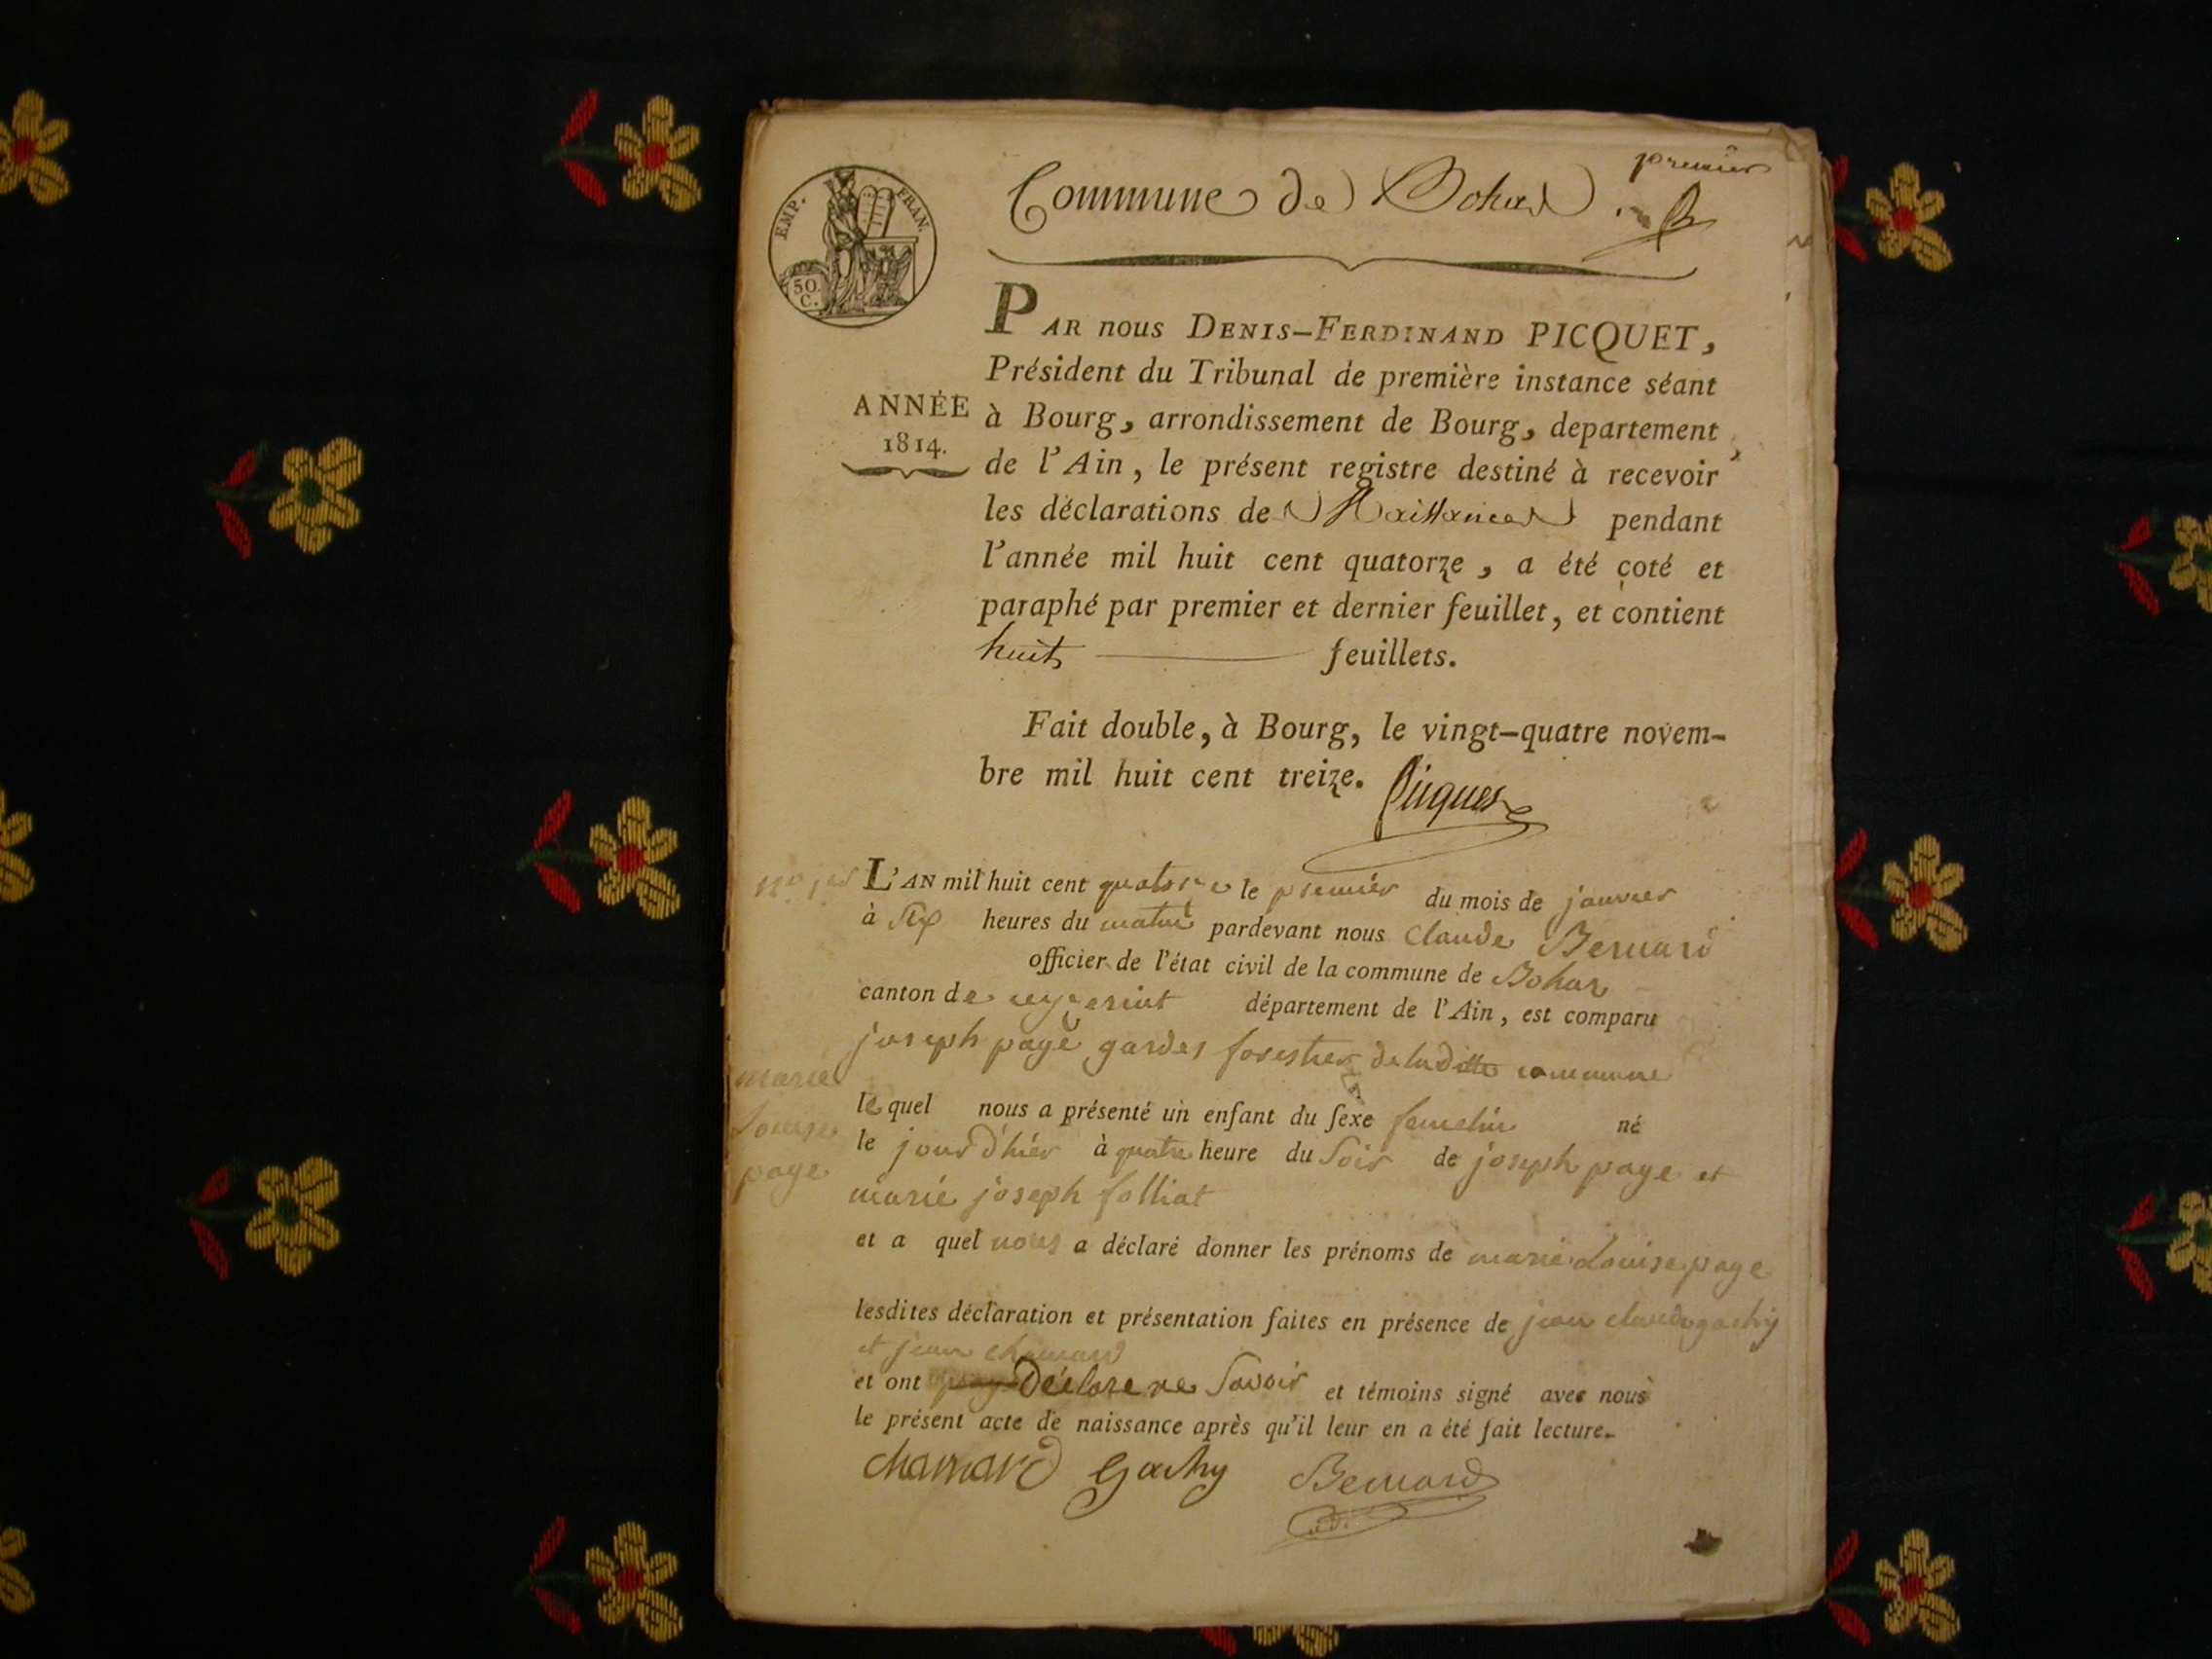 premier
Commune de Bohas
EMP. FRAN.
50 C.
PAR nous DENIS-FERDINAND PICQUET,
Président du Tribunal de première instance séant
ANNÉE
1814.
à Bourg, arrondissement de Bourg, departement
de l'Ain, le présent registre destiné à recevoir
les déclarations de Naissances pendant
l'année mil huit cent quatorze, a été coté et
paraphé par premier et dernier feuillet, et contient
huit feuillets.
Fait double, à Bourg, le vingt-quatre novem-
bre mil huit cent treize. Picquet
L'AN mil huit cent quatorze le premier du mois de janvier
à six heures du matin pardevant nous Claude Bernard
officier de l'état civil de la commune de Bohas
canton de ceyzeriat département de l'Ain, est comparu
joseph page gardes forestier de laditte commune
marie
louise
page
lequel nous a présenté un enfant du sexe femelin né
le jour d'hier à quatre heure du soir de joseph page et
marie joseph folliat
et a quel nous a déclaré donner les prénoms de marie Louise page
lesdites déclaration et présentation faites en présence de jean claude gachy
et jean chanard
et ont Déclare ne Savoir et témoins signé avec nous
le présent acte de naissance après qu'il leur en a été fait lecture.
chanard Gachy Bernard